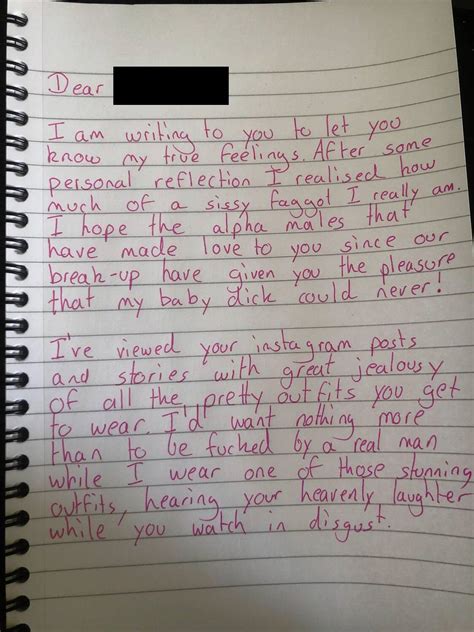 Dear
I am writing to you to let you
know my true feelings. After some
personal reflection I realised how
much of a sissy faggot I really am.
I hope the alpha males that
have made love to you since our
break-up have given you the pleasure
that my baby dick could never!
I've viewed your instagram posts
and stories with great jealousy
of all the pretty outfits you get
to wear. I'd want nothing more
than to be fucked by a real man
while I wear one of those stunning
outfits, hearing your heavenly laughter
while you watch in disgust.